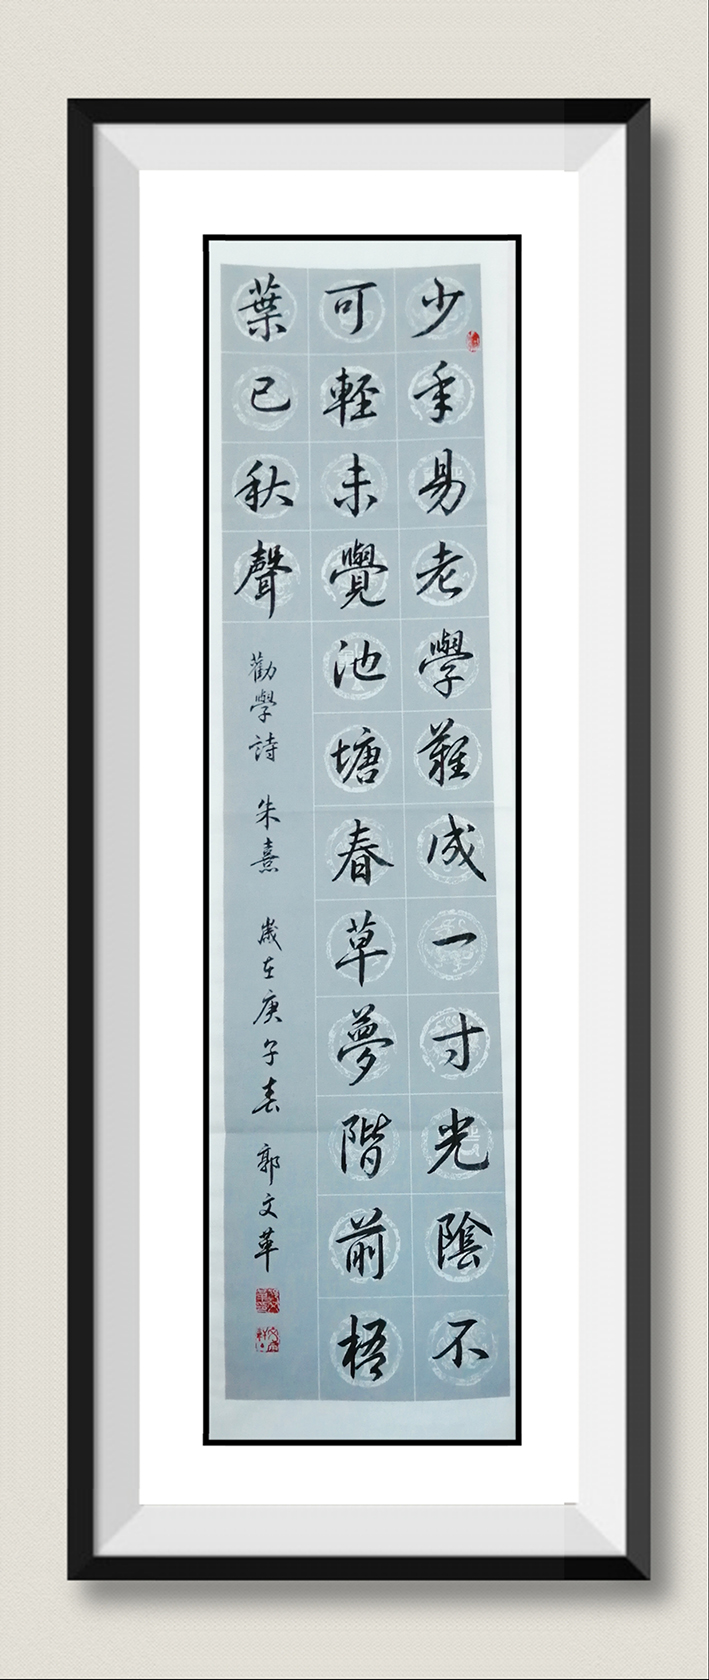 少年易老學難成一寸光陰不
可輕未覺池塘春草夢階前梧
葉已秋聲
勸學詩 朱熹 歲在庚子春 郭文革